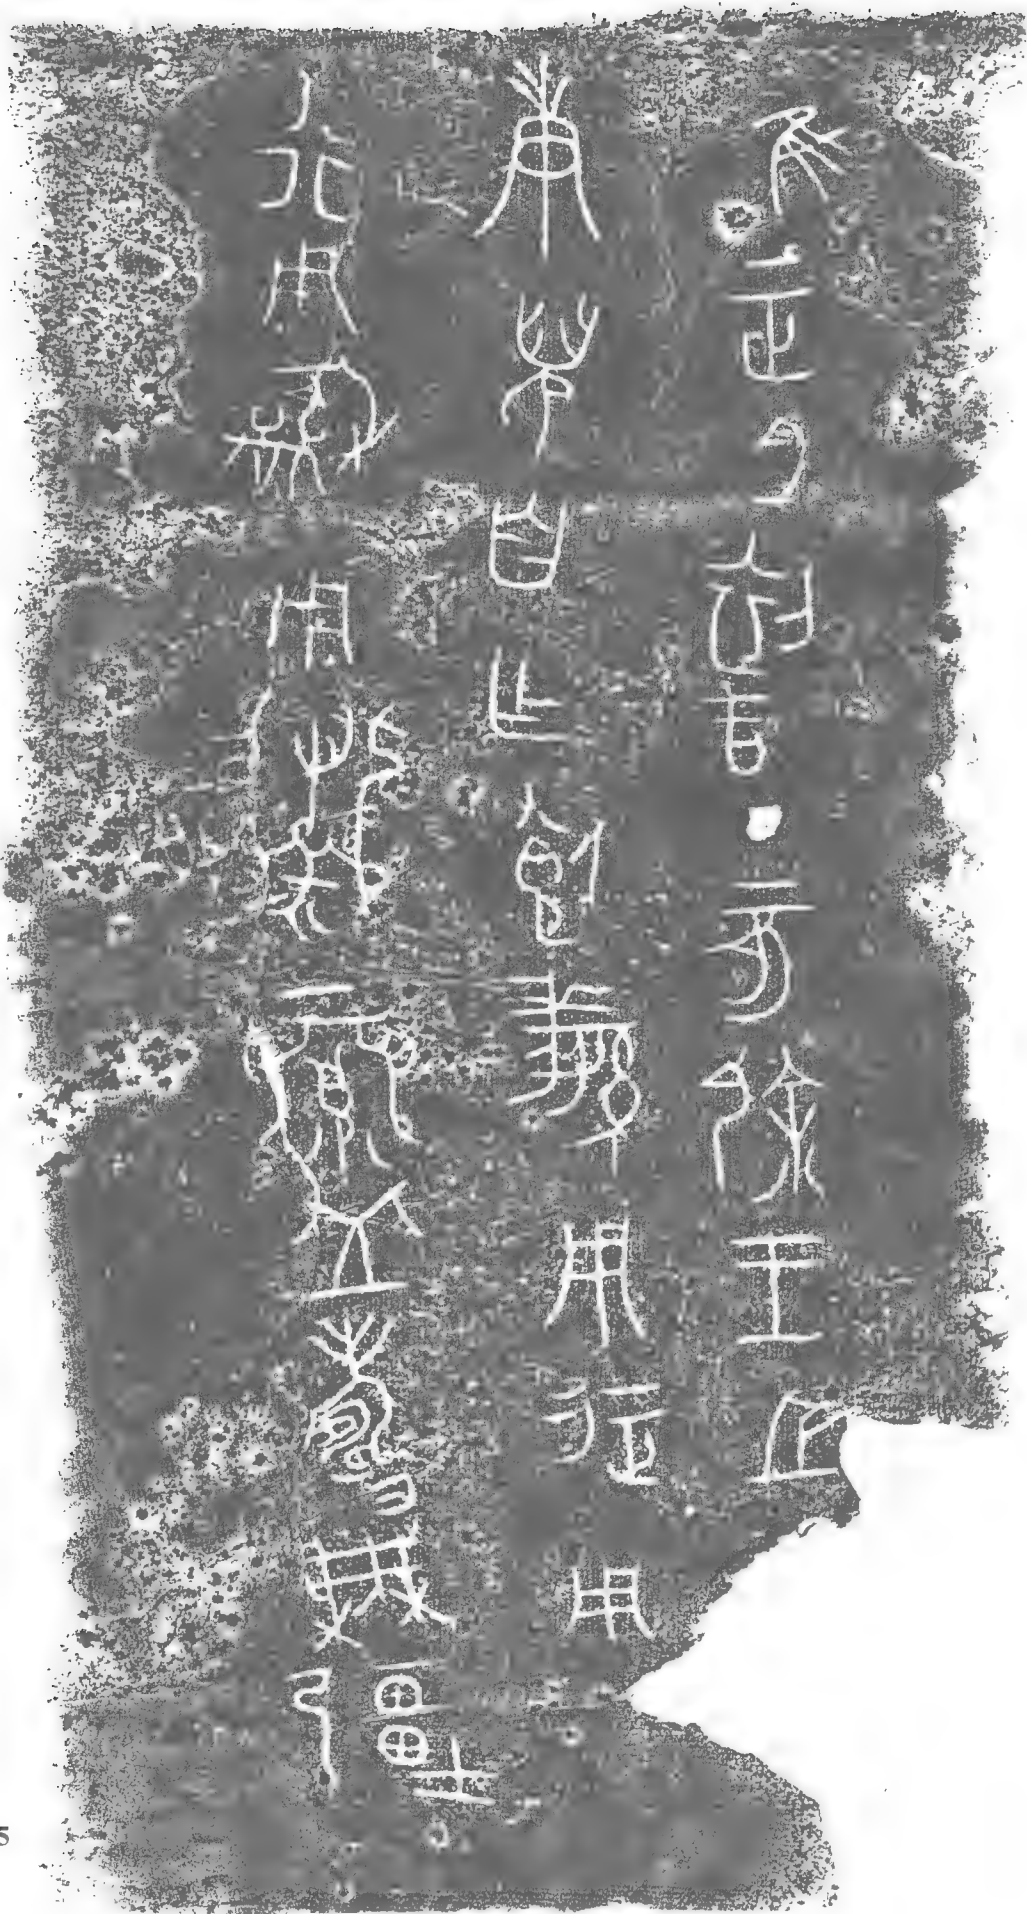 隹正月初吉丁亥郐王之
庚兒自乍飤䋣用征用
行用龢用眉壽無疆